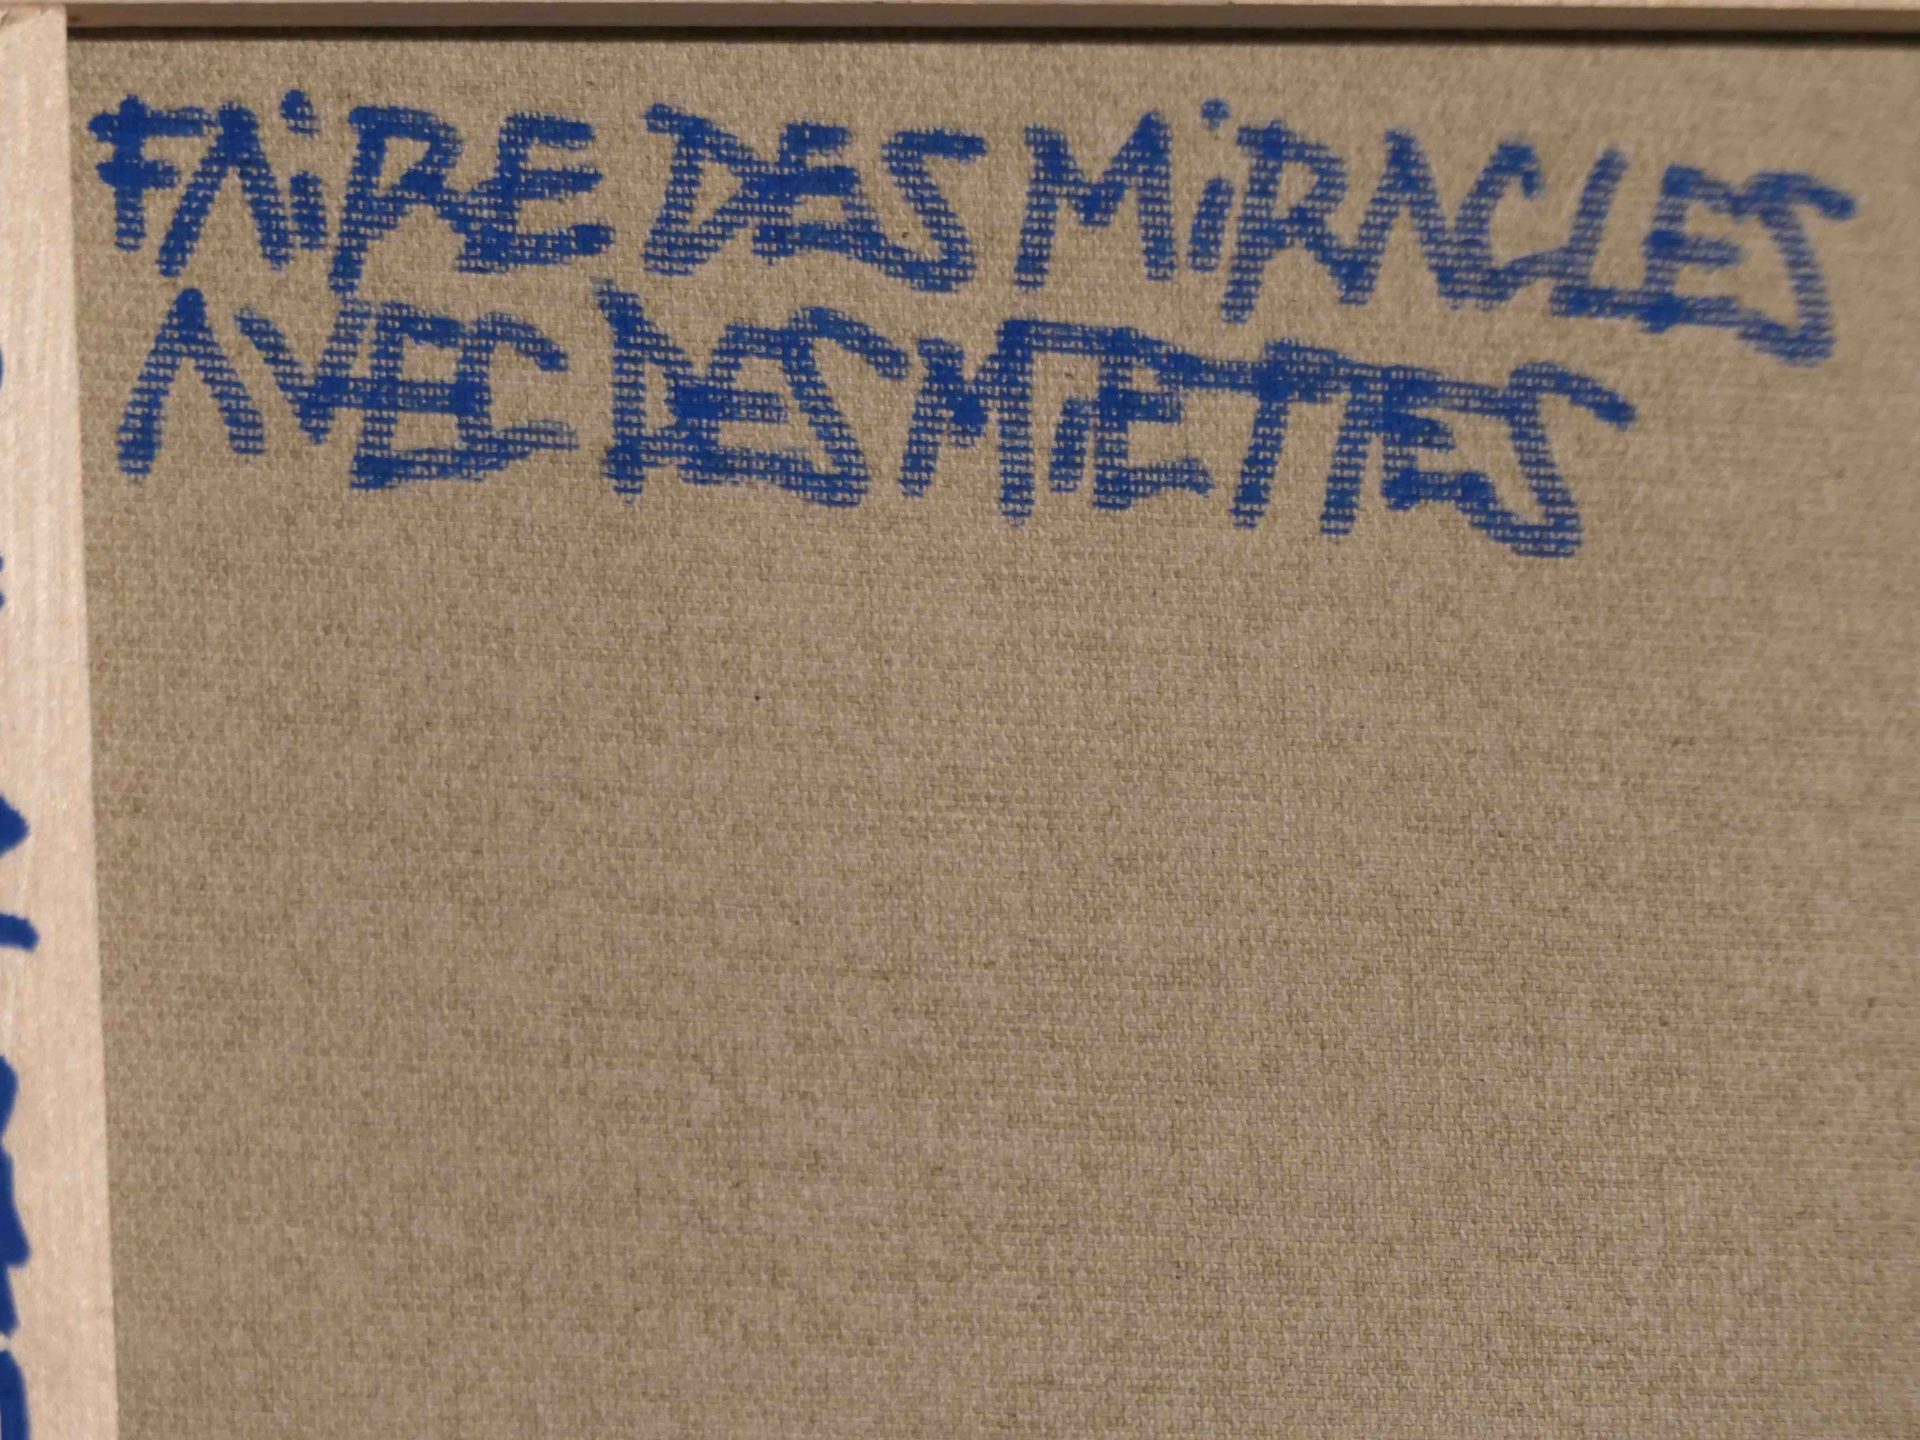 FAiRE DES MiRACLES
AVEC DES MiETTES